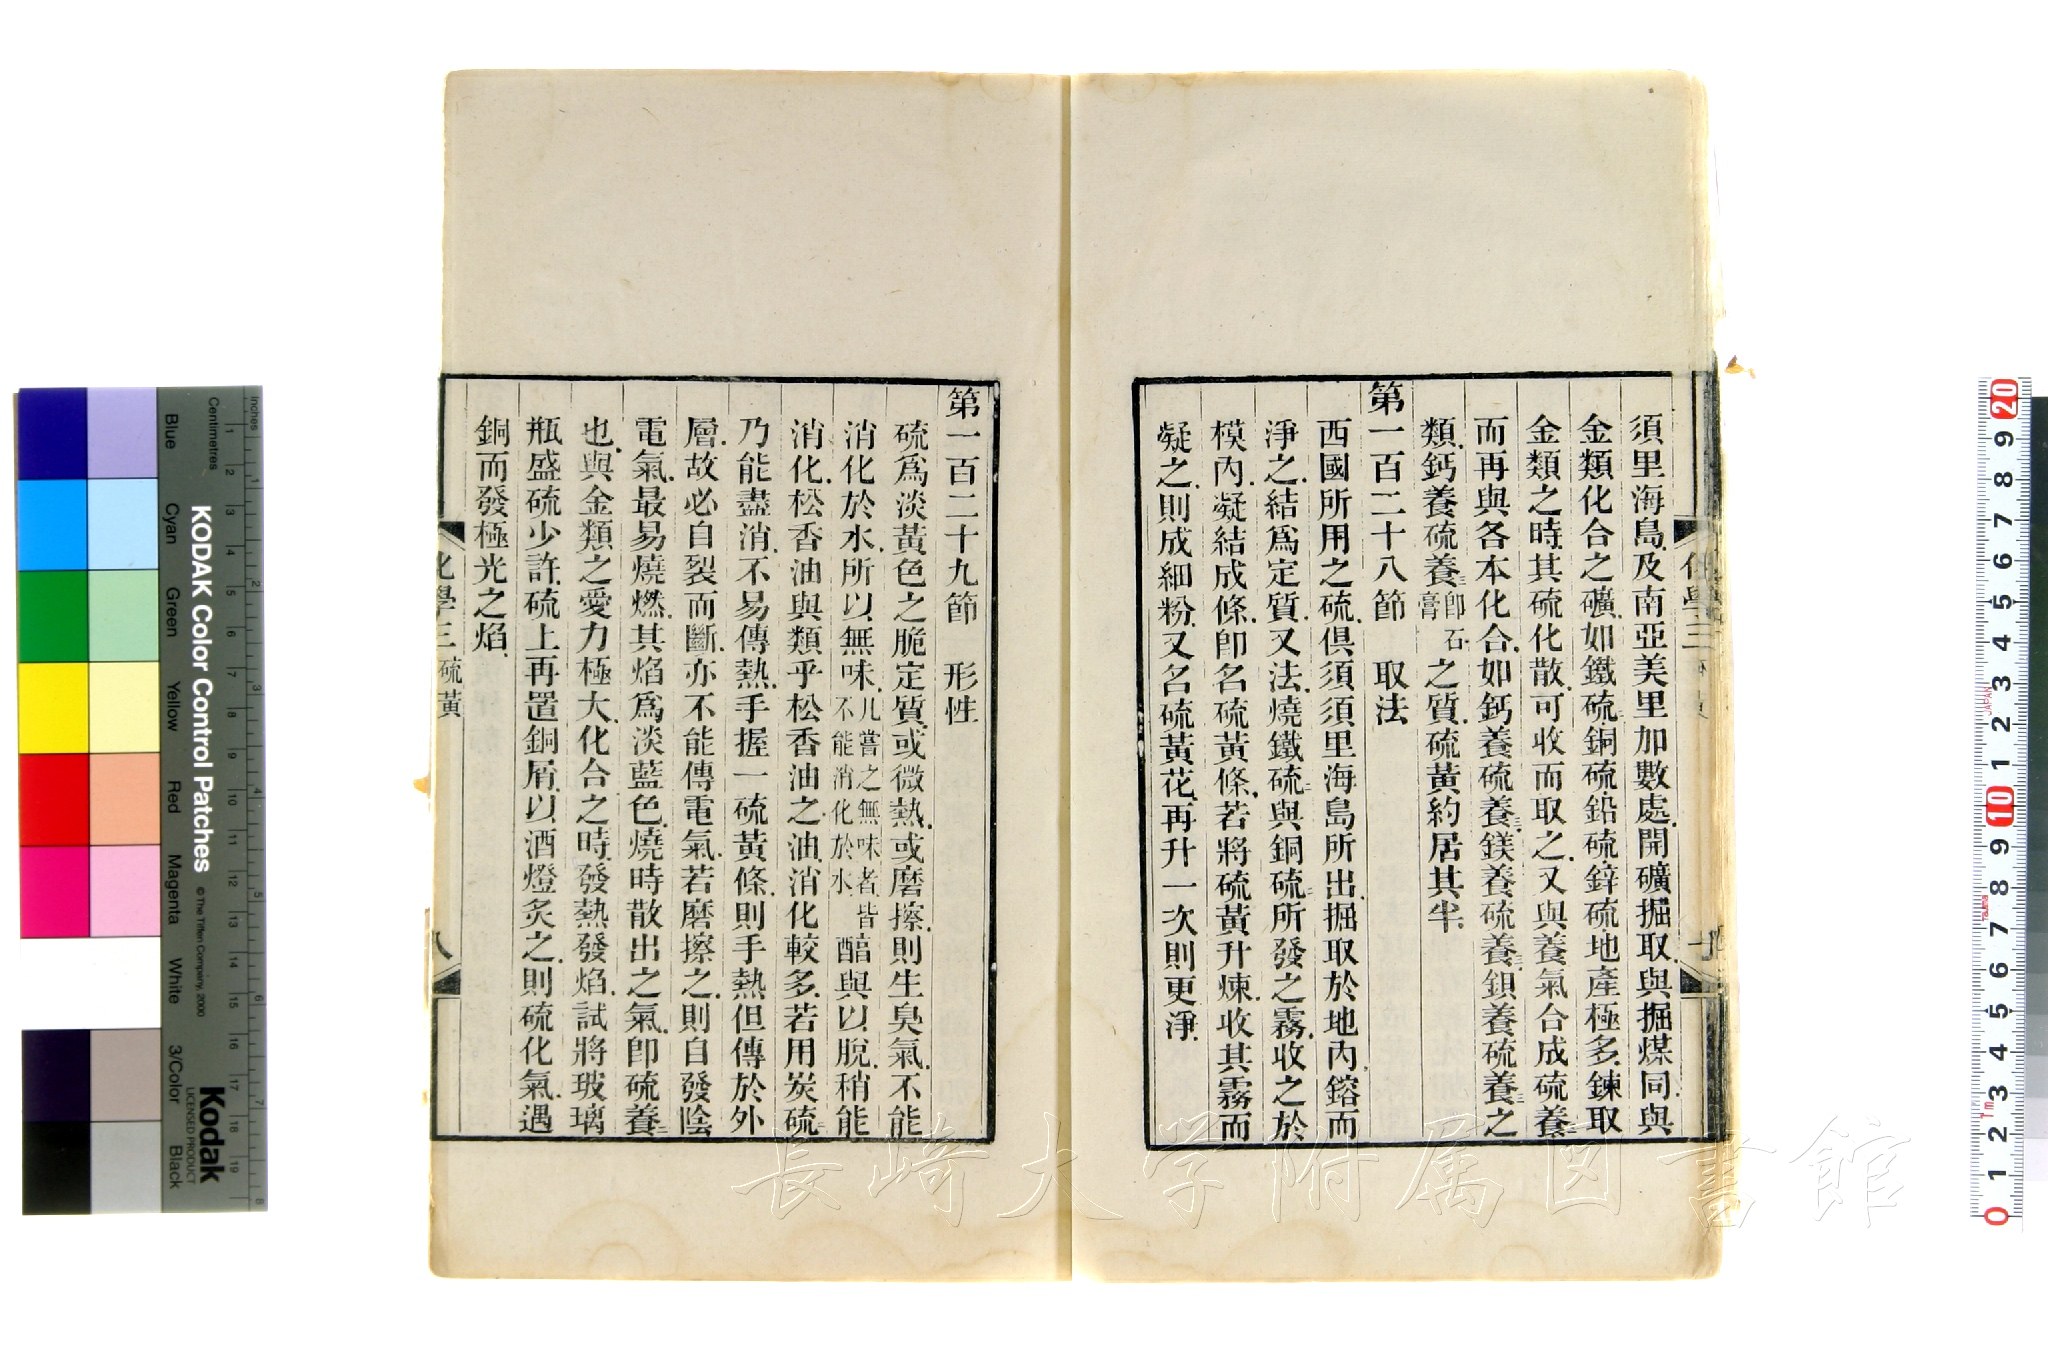 須里海島.及南亞美里加數處.開礦掘取.與掘煤同.與
金類化合之礦.如鐵硫.銅硫.鉛硫.鋅硫.地產極多.鍊取
金類之時.其硫化散.可收而取之.又與養氣合成硫養三
而再與各本化合.如鈣養硫養三.鎂養硫養三.鋇養硫養三之
類.鈣養硫養三即石膏之質.硫黃約居其半.
第一百二十八節 取法
西國所用之硫.俱須須里海島所出.掘取於地內.鎔而
淨之.結爲定質.又法.燒鐵硫二與銅硫二所發之霧.收之於
模內.凝結成條.卽名硫黃條.若將硫黃升煉.收其霧而
凝之.則成細粉.又名硫黃花.再升一次則更淨.
化學三
第一百二十九節 形性
硫爲淡黃色之脆定質.或微熱.或磨擦.則生臭氣.不能
消化於水.所以無味.凡嘗之無味者.皆不能消化於水.醕與以脫.稍能
消化.松香油與類乎松香油之油.消化較多.若用炭硫二
乃能盡消.不易傳熱.手握一硫黃條.則手熱但傳於外
層.故必自裂而斷.亦不能傳電氣.若磨擦之.則自發陰
電氣.最易燒燃.其焰爲淡藍色.燒時散出之氣.卽硫養二
也.與金類之愛力極大.化合之時.發熱發焰.試將玻璃
瓶盛硫少許.硫上再置銅屑.以酒燈炙之.則硫化氣.遇
銅而發極光之焰.
化學三 硫黃
八
長崎大学附属図書館
KODAK Color Control Patches
© The Tiffen Company, 2000
Kodak
LICENSED PRODUCT
inches
Centimetres
Blue
Cyan
Green
Yellow
Red
Magenta
White
3/Color
Black